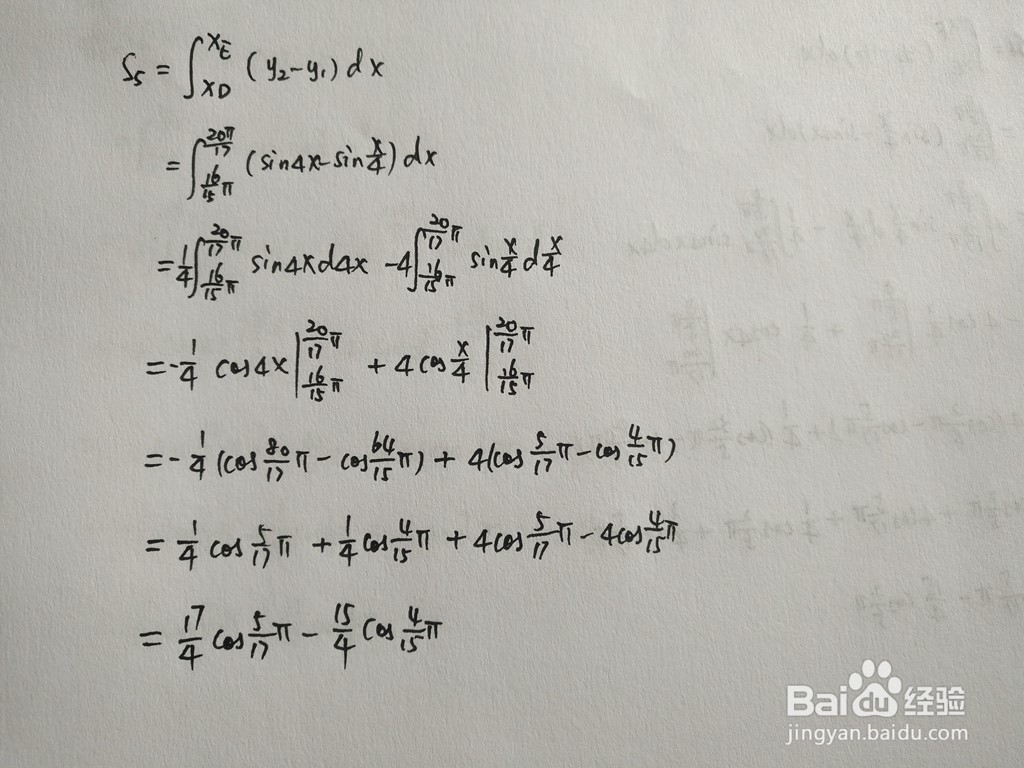 S₅ = ∫_{x_D}^{x_E} (y₂-y₁) dx
= ∫_{16/15 π}^{20π/17} (sin4x-sin x/4) dx
= 1/4 ∫_{16/15 π}^{20/17 π} sin4x d4x - 4 ∫_{16/15 π}^{20/17 π} sin x/4 d x/4
= -1/4 cos4x |_{16/15 π}^{20/17 π} + 4 cos x/4 |_{16/15 π}^{20/17 π}
= -1/4 (cos 80/17 π - cos 64/15 π) + 4(cos 5/17 π - cos 4/15 π)
= 1/4 cos 5/17 π + 1/4 cos 4/15 π + 4cos 5/17 π - 4cos 4/15 π
= 17/4 cos 5/17 π - 15/4 cos 4/15 π
Baidu 经验
jingyan.baidu.com